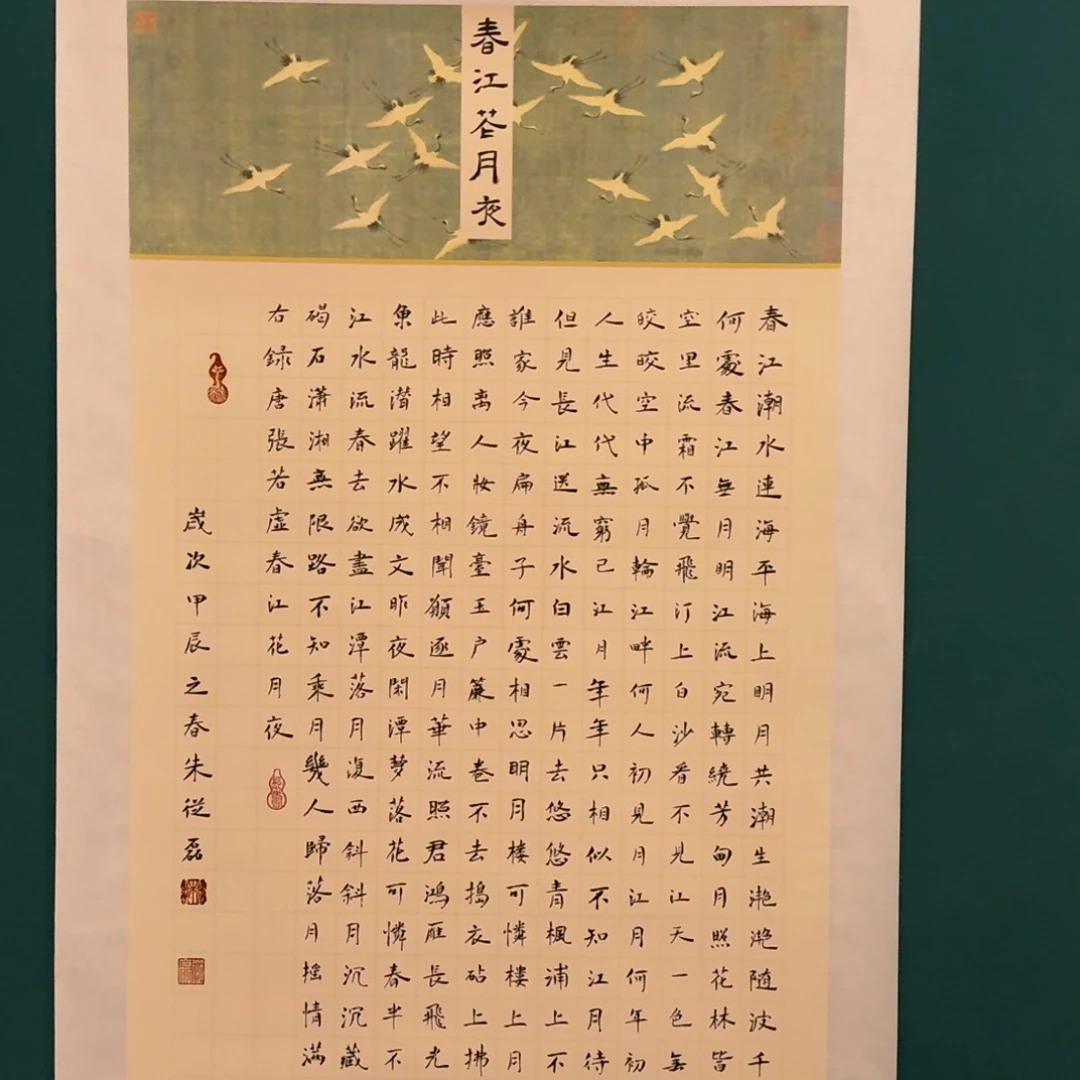 春江花月夜
春江潮水連海平海上明月共潮生滟滟随波千
何處春江無月明江流宛轉繞芳甸月照花林皆
空里流霜不覺飛汀上白沙看不見江天一色無
皎皎空中孤月輪江畔何人初見月江月何年初
人生代代無窮已江月年年只相似不知江月待
但見長江送流水白雲一片去悠悠青楓浦上不
誰家今夜扁舟子何處相思明月楼可憐楼上月
應照离人妝鏡臺玉户簾中卷不去搗衣砧上拂
此時相望不相聞願逐月華流照君鴻雁長飛光
魚龍潜躍水成文昨夜閑潭夢落花可憐春半不
江水流春去欲盡江潭落月復西斜斜月沉沉藏
碣石瀟湘無限路不知乘月幾人歸落月摇情满
右録唐張若虛春江花月夜
歲次甲辰之春朱從磊